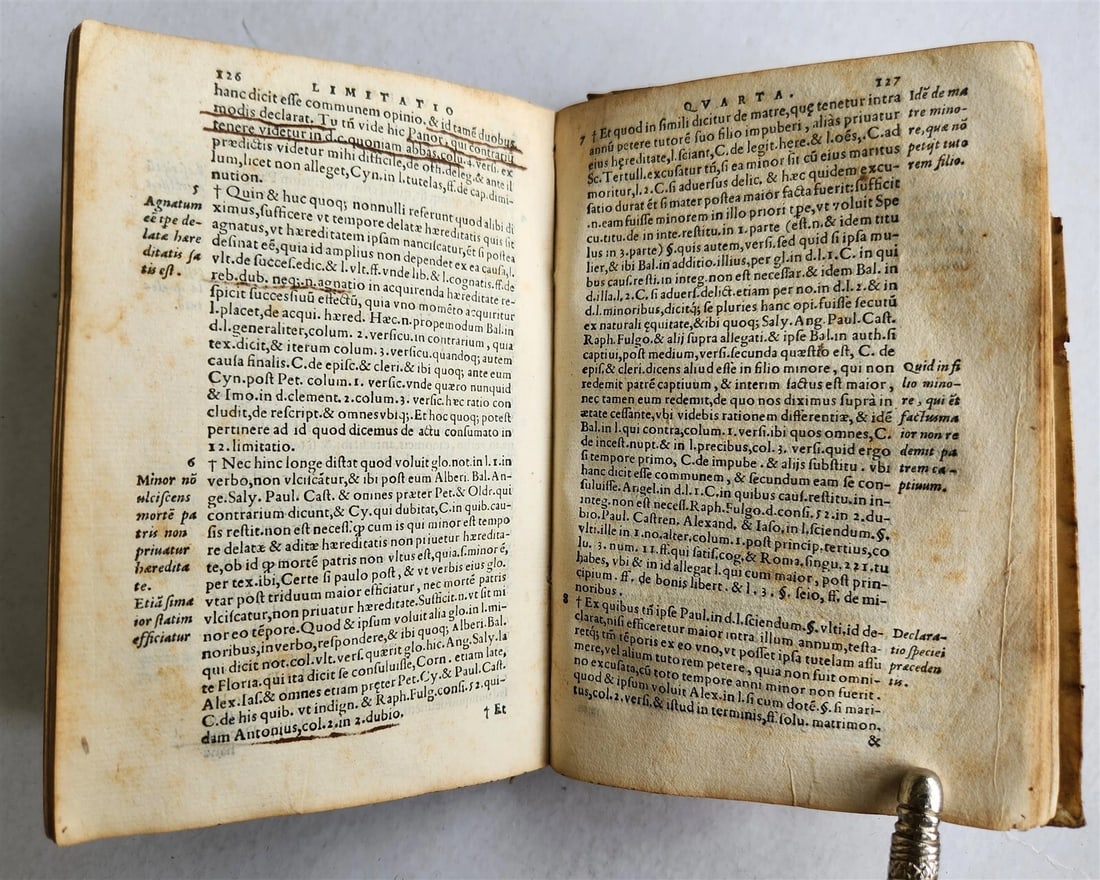 126
LIMITATIO
hanc dicit esse communem opinio. & id tamē duobus
modis declarat. Tu tñ vide hic Panor. qui contrariū
tenere videtur in d.c. quoniam abbas. colu. 4. versi. ex
prædictis videtur mihi difficile, de offi. deleg. & ante il
lum, licet non alleget, Cyn. in l. tutelas, ff. de cap. dimi-
nution.
5
† Quin & huc quoq; nonnulli referunt quod alibi di
ximus, sufficere vt tempore delatæ hæreditatis quis sit
agnatus, vt hæreditatem ipsam nanciscatur, et si postea
desinat eē, quia id amplius non dependet ex ea causa, l.
vlt. de succes. edic. & l. vlt. ff. vnde lib. & l. cognatis. ff. de
reb. dub. neq; n. agnatio in acquirenda hæreditate re-
spicit successiuū effectū, quia vno momēto acquiritur
l. placet, de acqui. hæred. Hæc. n. propemodum Bal. in
d. l. generaliter, colum. 2. versicu. in contrarium, quia
tex. dicit, & iterum colum. 3. versicu. quandoq; autem
causa finalis. C. de episc. & cleri. & ibi quoq; ante eum
Cyn. post Pet. colum. 1. versic. vnde quæro nunquid
& Imo. in d. clement. 2. colum. 3. versic. hæc ratio con
cludit, de rescript. & omnes vbiq;. Et hoc quoq; potest
pertinere ad id quod dicemus de actu consumato in
12. limitatio.
Agnatum
eē tpe de-
latæ hære
ditatis sa
tis est.
6
† Nec hinc longe distat quod voluit glo. not. in l. 1. in
verbo, non vlciscatur, & ibi post eum Alberi. Bal. An-
ge. Saly. Paul. Cast. & omnes præter Pet. & Oldr. qui
contrarium dicunt, & Cy. qui dubitat, C. in quib. cau-
sis restit. non est necess. ꝙ cum is qui minor est tempo
re delatæ & aditæ hæreditatis non priuetur hæredita-
te, ob id ꝙ mortē patris non vltus est, quia. s. minor ē,
per tex. ibi, Certe si paulo post, & vt verbis eius glo.
vtar post triduum maior efficiatur, nec mortē patris
vlciscatur, non priuatur hæreditate. Sufficit. n. vt sit mi
nor eo tēpore. Quod & ipsum voluit alia glo. in l. mi-
noribus, in verbo, respondere, & ibi quoq; Alberi. Bal.
qui dicit not. col. vlt. vers. quærit glo. hic. Ang. Saly. la
te Floria. qui ita dicit se consuluisse, Corn. etiam late,
Alex. Ias. & omnes etiam præter Pet. Cy. & Paul. Cast.
C. de his quib. vt indign. & Raph. Fulg. consi. 52. qui-
dam Antonius, col. 2. in 2. dubio.
† Et
Minor nō
vlciscens
mortē pa
tris non
priuatur
hæredita
te.
Etiā si ma
ior statim
efficiatur
127
QVARTA.
7 † Et quod in simili dicitur de matre, quę tenetur intra
annū petere tutorē suo filio impuberi, alias priuatur
eius hęreditate, l. sciant, C. de legit. here. & l. oēs, C. ad
Sc. Tertull. excusatur tñ, si ea minor sit cū eius maritus
moritur, l. 2. C. si aduersus delic. & hæc quidem excu-
satio durat ēt si mater postea maior facta fuerit: sufficit
.n. eam fuisse minorem in illo priori tpe, vt voluit Spe
cu. titu. de in inte. restitu. in 1. parte (est. n. & idem titu
lus in 3. parte) §. quis autem, versi. sed quid si ipsa mu-
lier, & ibi Bal. in additio. illius, per gl. in d. l. 1. C. in qui
bus caus. resti. in integ. non est necessar. & idem Bal. in
d. illa. l. 2. C. si aduers. delict. etiam per no. in d. l. 2. & in
d. l. minoribus, dicitq; se pluries hanc opi. fuisse secutū
ex naturali ęquitate, & ibi quoq; Saly. Ang. Paul. Cast.
Raph. Fulgo. & alij supra allegati. & ipse Bal. in auth. si
captiui, post medium, versi. secunda quæstio est, C. de
epis. & cleri. dicens aliud esse in filio minore, qui non
redemit patrē captiuum, & interim factus est maior,
nec tamen eum redemit, de quo nos diximus suprà in
ætate cessante, vbi videbis rationem differentiæ, & idē
Bal. in l. qui contra, colum. 1. versi. ibi quos omnes, C.
de incest. nupt. & in l. precibus, col. 3. versi. quid ergo
si tempore primo, C. de impube. & alijs substitu. vbi
hanc dicit esse communem, & secundum eam se con-
suluisse. Angel. in d. l. 1. C. in quibus caus. restitu. in in-
integ. non est necess. Raph. Fulgo. d. consi. 52. in 2. du-
bio. Paul. Castren. Alexand. & Iaso, in l. sciendum. §.
vlti. ille in 1. no. alter, colum. 1. post princip. tertius, co
lu. 3. num. 11. ff. qui satis. cog, & Roma. singu. 221. tu
habes, vbi & in id allegat l. qui cum maior, post prin-
cipium. ff. de bonis libert. & l. 3. §. scio, ff. de mi-
noribus.
8 † Ex quibus tñ ipse Paul. in d. l. sciendum. §. vlti. id de-
clarat, nisi efficeretur maior intra illum annum, testa-
retq; tñ tēporis ex eo vno, vt posset ipsa tutelam assu
mere, vel alium tutorem petere, quia non fuit omni-
no excusata, cū toto tempore anni minor non fuerit.
quod & ipsum voluit Alex. in l. si cum dotē. §. si mari-
tus, col. 2. versi. & istud in terminis, ff. solu. matrimon.
&
Idē de ma
tre mino-
re, quæ nō
petijt tuto
rem filio.
Quid in fi
lio mino-
re, qui ēt
factus ma
ior non re
demit pa
trem ca-
ptiuum.
Declara-
tio speciei
præceden
tis.